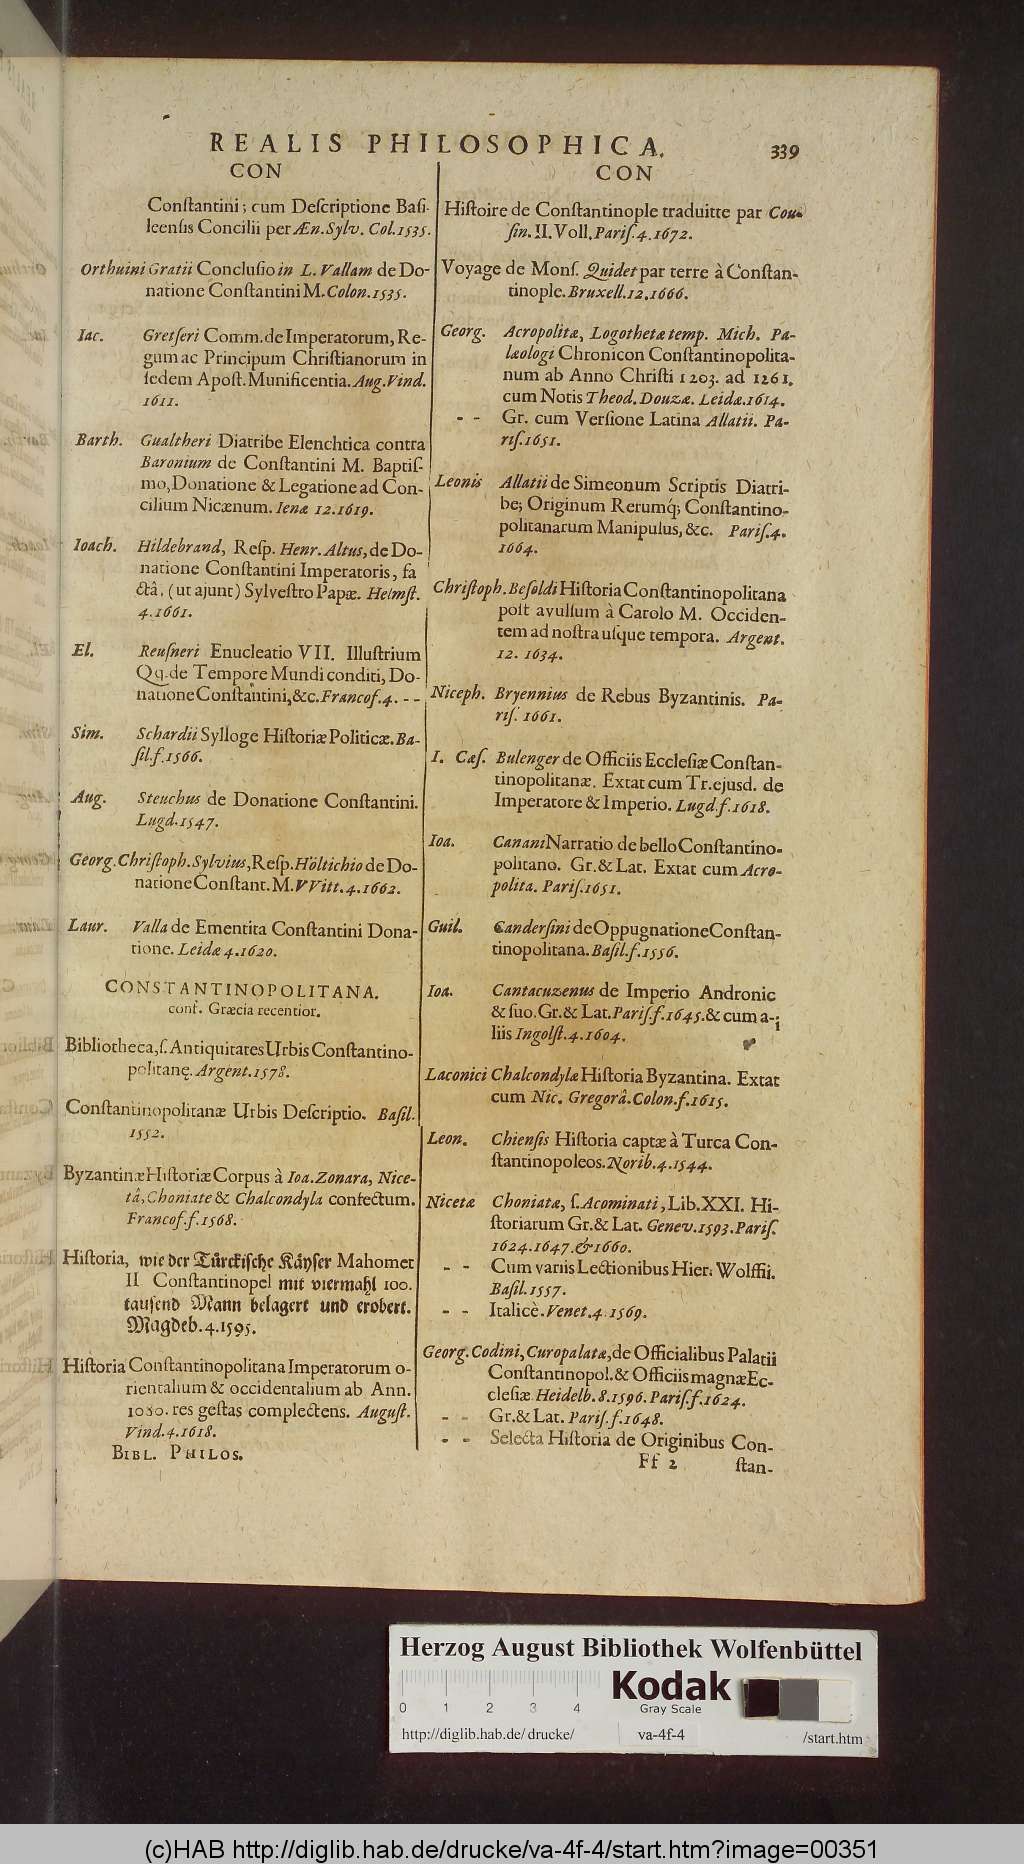 REALIS PHILOSOPHICA. 339
CON
Conſtantini; cum Deſcriptione Baſi-
leenſis Concilii per Æn. Sylv. Col. 1535.
Orthuini Gratii Concluſio in L. Vallam de Do-
natione Conſtantini M. Colon. 1535.
Iac. Gretſeri Comm. de Imperatorum, Re-
gum ac Principum Chriſtianorum in
ſedem Apoſt. Munificentia. Aug. Vind.
1611.
Barth. Gualtheri Diatribe Elenchtica contra
Baronium de Conſtantini M. Baptiſ-
mo, Donatione & Legatione ad Con-
cilium Nicænum. Ienæ 12. 1619.
Ioach. Hildebrand, Reſp. Henr. Altus, de Do-
natione Conſtantini Imperatoris, fa
ctâ, (ut ajunt) Sylveſtro Papæ. Helmſt.
4. 1661.
El. Reuſneri Enucleatio VII. Illuſtrium
Qq. de Tempore Mundi conditi, Do-
natione Conſtantini, &c. Francof. 4. - -
Sim. Schardii Sylloge Hiſtoriæ Politicæ. Ba-
ſil. f. 1566.
Aug. Steuchus de Donatione Conſtantini.
Lugd. 1547.
Georg. Chriſtoph. Sylvius, Reſp. Höltichio de Do-
natione Conſtant. M. VVitt. 4. 1662.
Laur. Valla de Ementita Conſtantini Dona-
tione. Leidæ 4. 1620.
CONSTANTINOPOLITANA.
conf. Græcia recentior.
Bibliotheca, ſ. Antiquitates Urbis Conſtantino-
politanę. Argent. 1578.
Conſtantinopolitanæ Urbis Deſcriptio. Baſil.
1552.
Byzantinæ Hiſtoriæ Corpus à Ioa. Zonara, Nice-
tâ, Choniate & Chalcondyla confectum.
Francof. f. 1568.
Hiſtoria, wie der Türckiſche Käyſer Mahomet
II Conſtantinopel mit viermahl 100.
tauſend Mann belagert und erobert.
Magdeb. 4. 1595.
Hiſtoria Conſtantinopolitana Imperatorum o-
rientalium & occidentalium ab Ann.
1080. res geſtas complectens. Auguſt.
Vind. 4. 1618.
BIBL. PHILOS.
CON
Hiſtoire de Conſtantinople traduitte par Cou-
ſin. II. Voll. Pariſ. 4. 1672.
Voyage de Monſ. Quidet par terre à Conſtan-
tinople. Bruxell. 12. 1666.
Georg. Acropolitæ, Logothetæ temp. Mich. Pa-
læologi Chronicon Conſtantinopolita-
num ab Anno Chriſti 1203. ad 1261.
cum Notis Theod. Douzæ. Leidæ. 1614.
- - Gr. cum Verſione Latina Allatii. Pa-
riſ. 1651.
Leonis Allatii de Simeonum Scriptis Diatri-
be; Originum Rerumq́; Conſtantino-
politanarum Manipulus, &c. Pariſ. 4.
1664.
Chriſtoph. Beſoldi Hiſtoria Conſtantinopolitana
poſt avulſum à Carolo M. Occiden-
tem ad noſtra uſque tempora. Argent.
12. 1634.
Niceph. Bryennius de Rebus Byzantinis. Pa-
riſ. 1661.
I. Cæſ. Bulenger de Officiis Eccleſiæ Conſtan-
tinopolitanæ. Extat cum Tr. ejusd. de
Imperatore & Imperio. Lugd. f. 1618.
Ioa. Canani Narratio de bello Conſtantino-
politano. Gr. & Lat. Extat cum Acro-
polita. Pariſ. 1651.
Guil. Canderſini de Oppugnatione Conſtan-
tinopolitana. Baſil. f. 1556.
Ioa. Cantacuzenus de Imperio Andronic
& ſuo. Gr. & Lat. Pariſ. f. 1645. & cum a-
liis Ingolſt. 4. 1604.
Laconici Chalcondylæ Hiſtoria Byzantina. Extat
cum Nic. Gregorâ. Colon. f. 1615.
Leon. Chienſis Hiſtoria captæ à Turca Con-
ſtantinopoleos. Norib. 4. 1544.
Nicetæ Choniatæ, ſ. Acominati, Lib. XXI. Hi-
ſtoriarum Gr. & Lat. Genev. 1593. Pariſ.
1624. 1647. & 1660.
- - Cum variis Lectionibus Hier. Wolffii.
Baſil. 1557.
- - Italicè. Venet. 4. 1569.
Georg. Codini, Curopalatæ, de Officialibus Palatii
Conſtantinopol. & Officiis magnæ Ec-
cleſiæ Heidelb. 8. 1596. Pariſ. f. 1624.
- - Gr. & Lat. Pariſ. f. 1648.
- - Selecta Hiſtoria de Originibus Con-
Ff 2 ſtan-
Herzog August Bibliothek Wolfenbüttel
0 1 2 3 4
Kodak
Gray Scale
http://diglib.hab.de/drucke/ va-4f-4 /start.htm
(c)HAB http://diglib.hab.de/drucke/va-4f-4/start.htm?image=00351